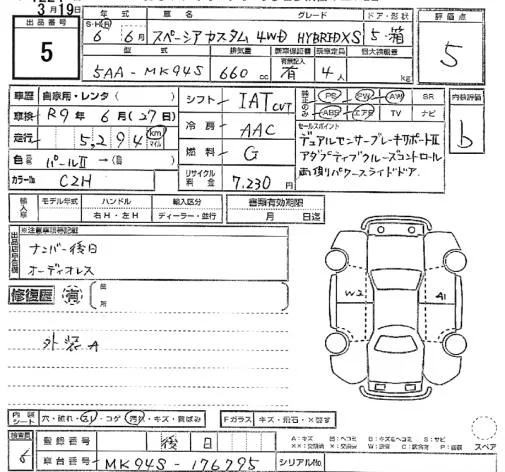 3月19日
出品番号
5
年式 車名 グレード ドア・形状 評価点
S・H・R
6年 6月 スペーシアカスタム 4WD HYBRID XS 5・箱
5
型式 排気量 乗車定員 最大積載量
5AA-MK94S 660cc 有 4人 kg
車歴 自家用・レンタ( )
車検 R9年6月(27日)
走行 5,294 km マイル
色 パールII →( 色)
カラーNo C2H
シフト IAT CVT
冷房 AAC
燃料 G
リサイクル料金 7,230円
PS PW AW SR
ABS エアB TV ナビ
内装評価
b
セールスポイント
デュアルセンサーブレーキサポートII
アダプティブクルーズコントロール
両側パワースライドドア
輸入車 モデル年式 ハンドル 輸入区分 書類有効期限
右H・左H ディーラー・並行 月 日迄
※注意事項等記載
ナンバー後日
オーディオレス
修復歴 有 箇所
外装A
W2 A1
内装シート 穴・破れ・汚れ・コゲ Fガラス キズ・飛石・×替す
検査員
6
登録番号 後日
車台番号 MK94S-176795 シリアルNo.
A:キズ S:サビ
スペア